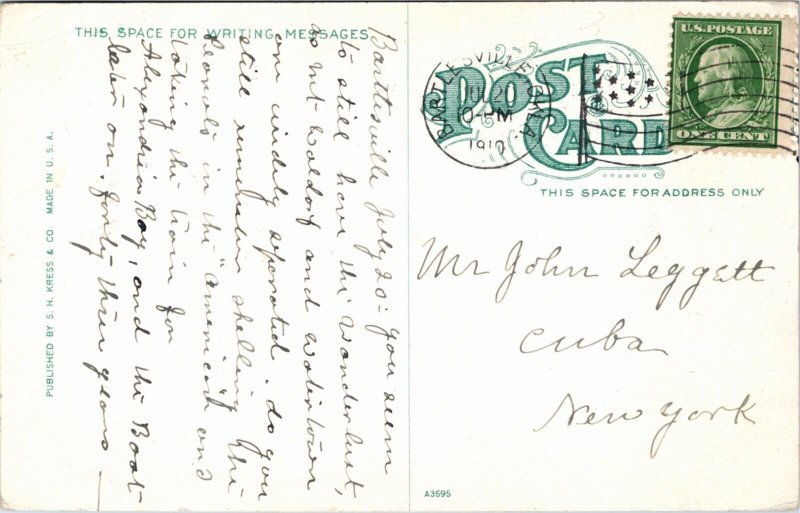 THIS SPACE FOR WRITING MESSAGES
Bartlesville July 20 - you seem
to still have the Wanderlust,
as Mt Waldorf and Watertown
are widely seperated. do you
still remember shelling the
Peanuts in the "American" and
taking the train for
Alexandria Bay, and the Boat
later on. forty three years —
PUBLISHED BY S. H. KRESS & CO. MADE IN U.S.A.
POST CARD
BARTLESVILLE OKLA.
JUL 20
PM
1910
U.S. POSTAGE
ONE CENT
THIS SPACE FOR ADDRESS ONLY
Mr John Leggett
Cuba
New York
A3595